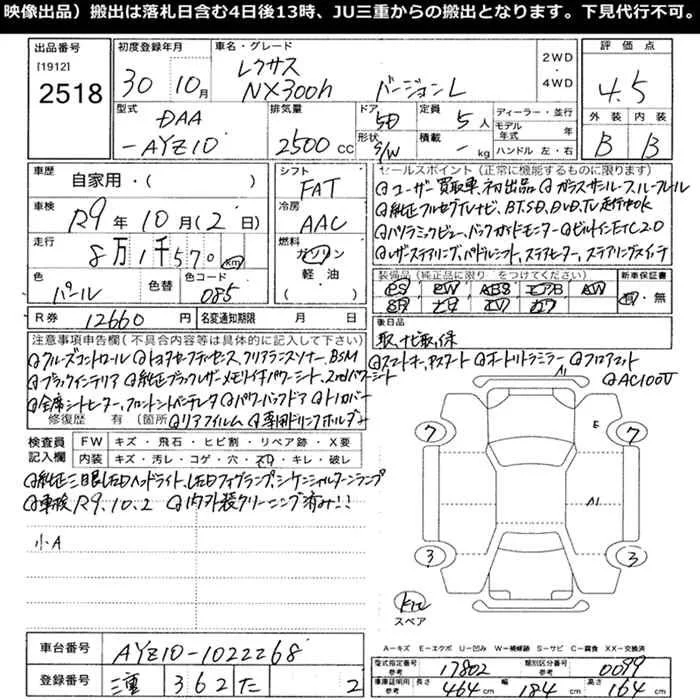 映像出品）搬出は落札日含む4日後13時、JU三重からの搬出となります。下見代行不可。
出品番号
[1912]
2518
初度登録年月
30年 10月
車名・グレード
レクサス
NX300h バージョンL
2WD
・
4WD
評価点
4.5
外装 内装
B B
型式
DAA
-AYZ10
排気量
2500 CC
ドア
5D
形状
S/W
定員
5人
積載
- kg
ディーラー・並行
モデル年式 年
ハンドル 左・右
車歴
自家用・( )
車検
R9年10月(2日)
走行
8万1千570 km
色
パール
色替
色コード
085
シフト
FAT
冷房
AAC
燃料
ガソリン
軽油
( )
R券 12660円
名変通知期限 月 日
セールスポイント (正常に機能するものに限ります)
◎ユーザー買取車、初出品 ◎ガラスサンルーフ、ルーフレール
◎純正フルセグTVナビ、BT、SD、DVD、TV走行中OK
◎パノラミックビュー、バックガイドモニター ◎ビルトインETC2.0
◎レザーステアリング、パドルシフト、ステアヒーター、ステアリングスイッチ
装備品（純正品に限り○をつけてください）
PS PW ABS エアB AW
SR 本革 TV ナビ
新車保証書
有・無
後日品
取、ナビ取、保
注意事項申告欄(不具合内容等は具体的に記入して下さい)
◎クルーズコントロール ◎トヨタセーフティセンス、クリアランスソナー、BSM ◎スマートキー、Pスタート ◎オートリトラミラー ◎フロアマット
◎ブラックインテリア ◎純正ブラックレザーメモリ付パワーシート、2ndパワーシート ◎AC100V
◎全席シートヒーター、フロントシートベンチレーター ◎パワーバックドア ◎トノカバー
修復歴 有 (箇所 ◎リアフィルム ◎専用ドリンクホルダー
検査員記入欄
FW キズ・飛石・ヒビ割・リペア跡・X要
内装 キズ・汚レ・コゲ・穴・スレ・キレ・破レ
◎純正三眼LEDヘッドライト、LEDフォグランプ、シーケンシャルターンランプ
◎車検R9.10.2 ◎内外装クリーニング済み!!
小A
A1
E
A1
7
7
3
3
キズ
スペア
A－キズ E－エクボ U－凹み W－補修跡 S－サビ C－腐食 XX－交換済
車台番号 AYZ10-1022268
登録番号 三重 362 た 2
型式指定番号 参考 17802
類別区分番号 参考 0099
車庫証明用 参考 長さ 464cm 幅 184cm 高さ 164cm